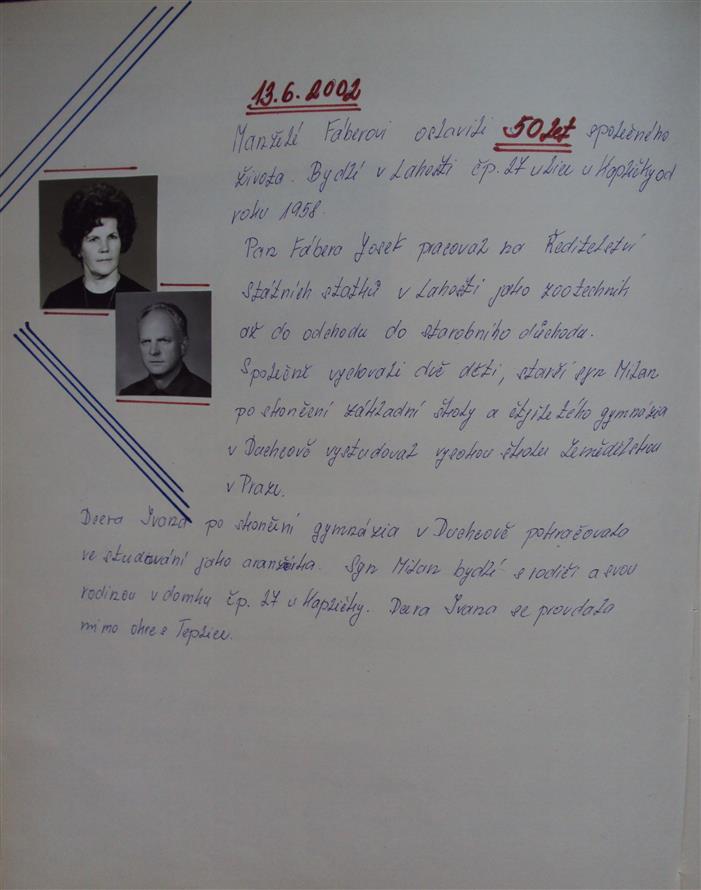 13.6.2002
Manželé Fáberovi oslavili 50 let společného
života. Bydlí v Lahošti čp. 27 ulice u Kapličky od
roku 1958.
Pan Fábera Josef pracoval na Ředitelství
státních statků v Lahošti jako zootechnik
až do odchodu do starobního důchodu.
Společně vychovali dvě děti, starší syn Milan
po skončení základní školy a čtyřletého gymnázia
v Duchcově vystudoval vysokou školu Zemědělskou
v Praze.
Dcera Ivana po skončení gymnázia v Duchcově pokračovala
ve studování jako aranžérka. Syn Milan bydlí s rodiči a svou
rodinou v domku čp. 27 u Kapličky. Dcera Ivana se provdala
mimo okres Teplice.